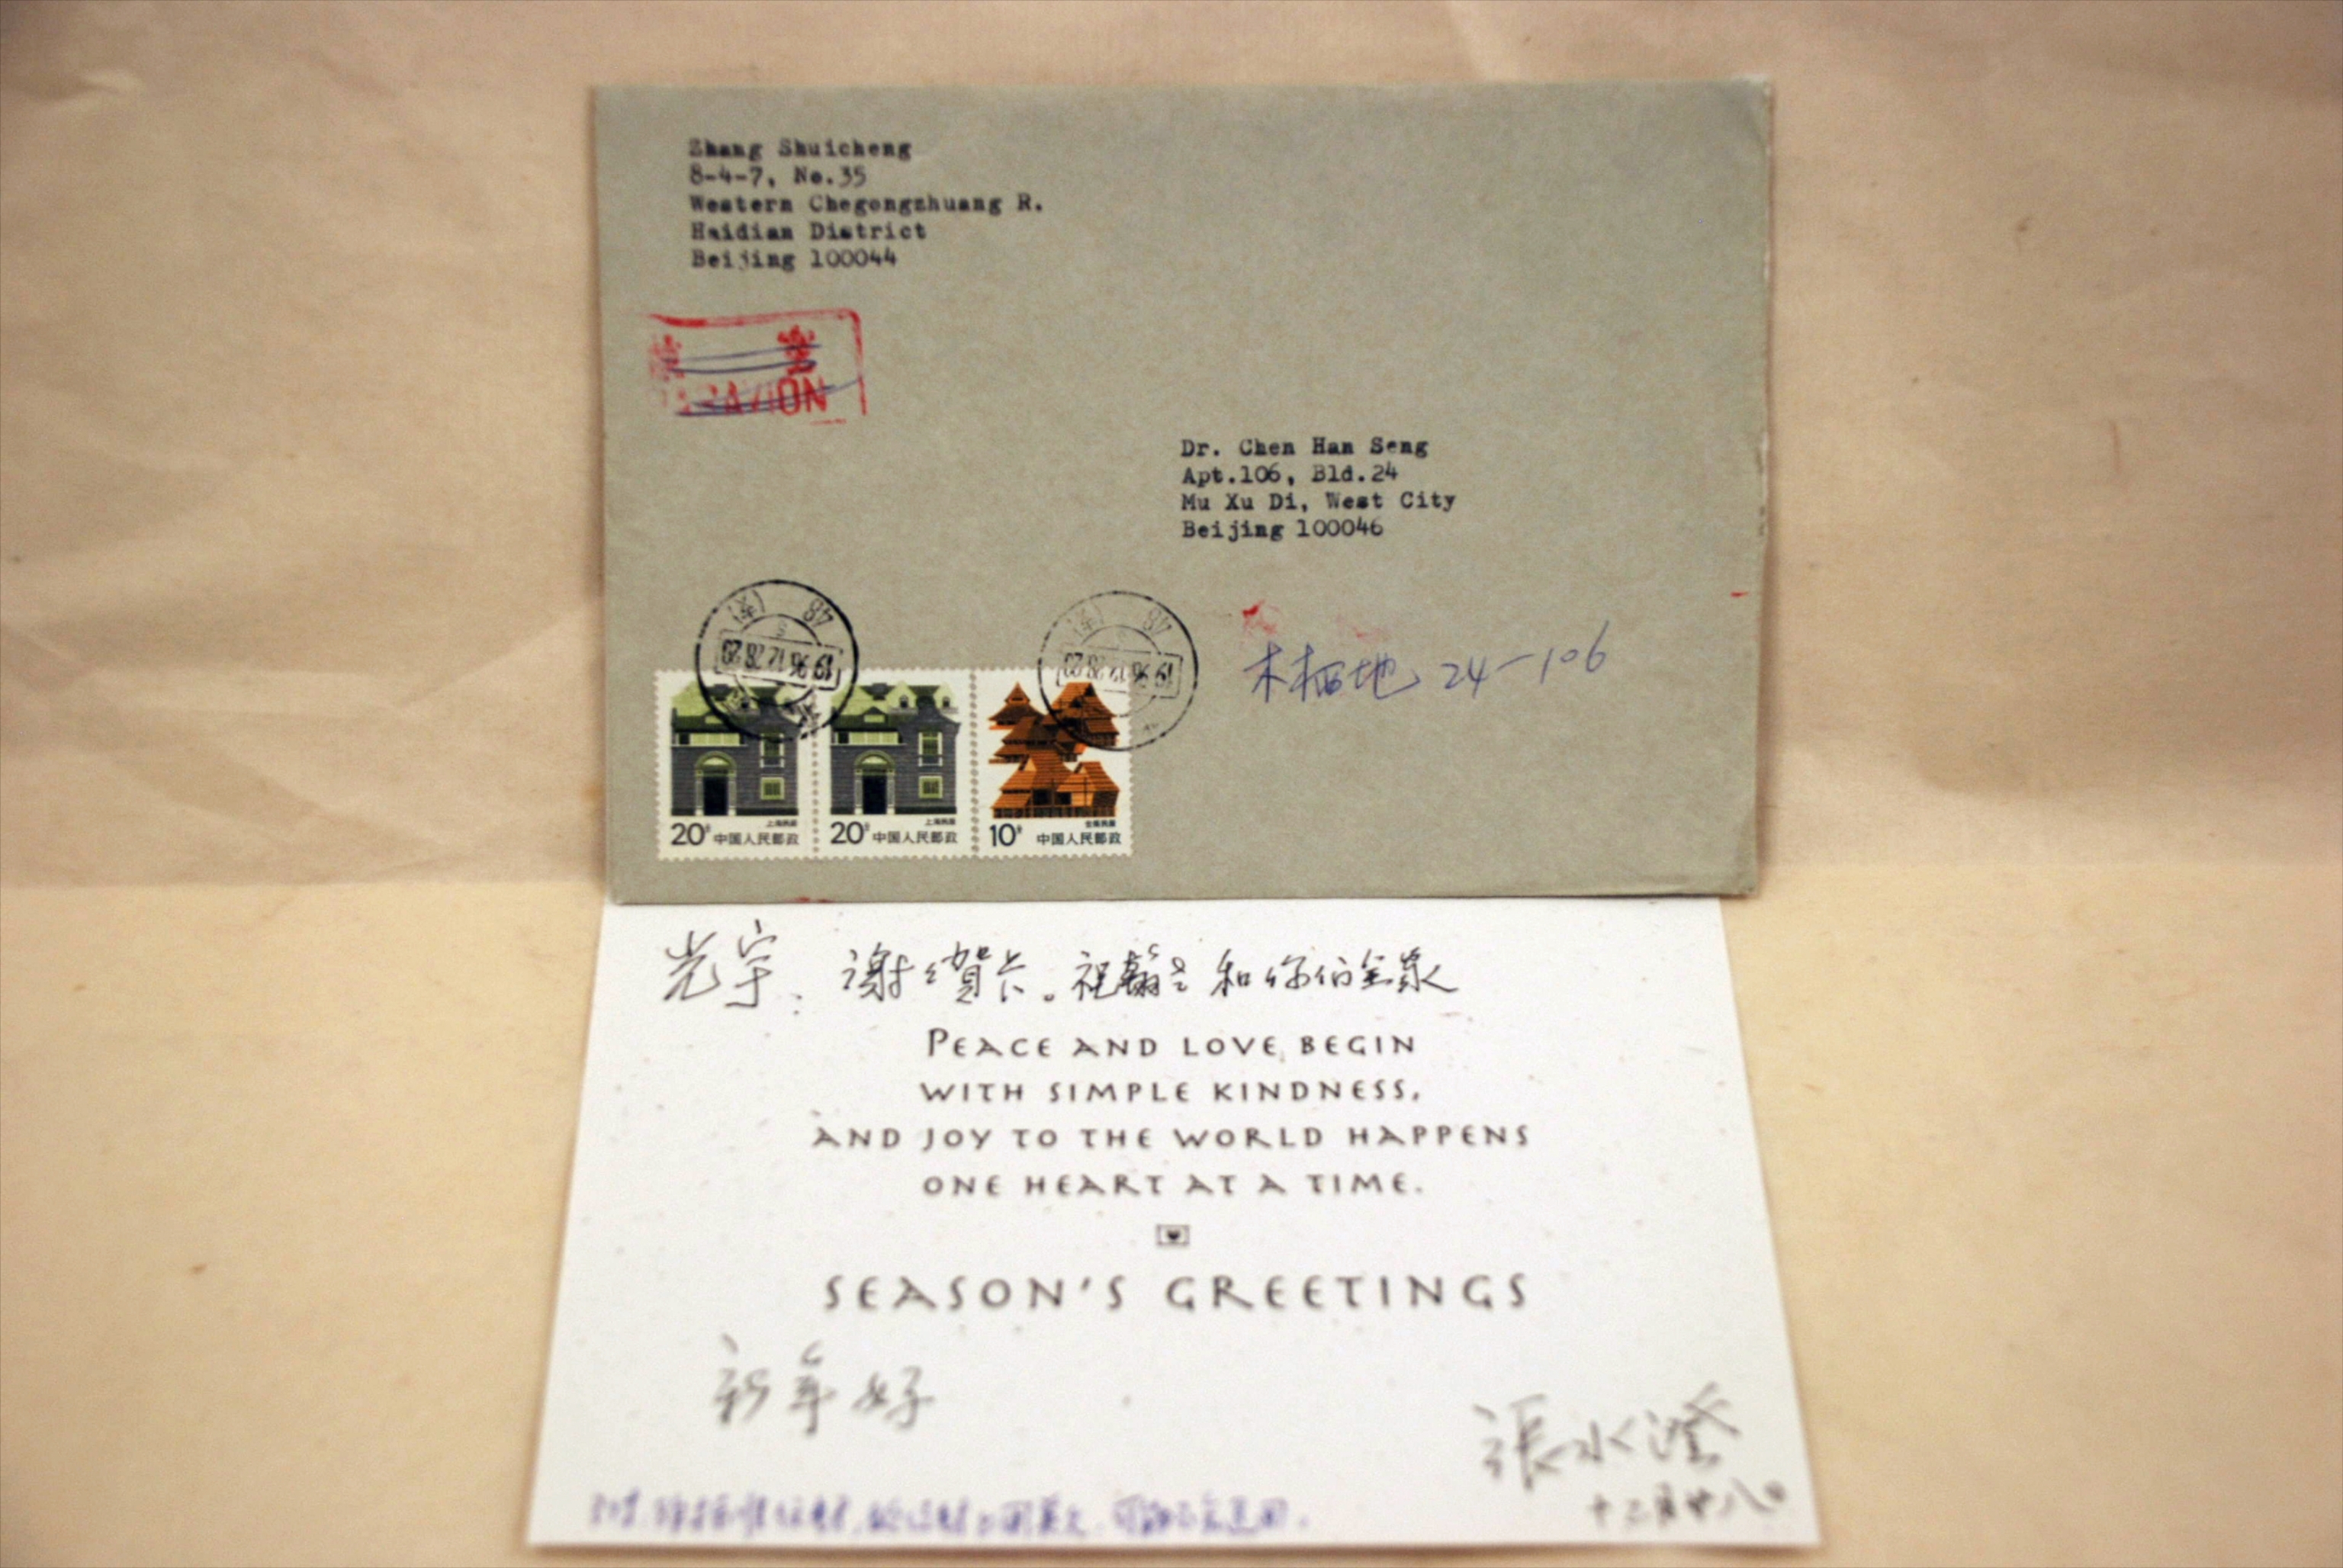 Zhang Shuicheng
8-4-7, No.35
Western Chegongzhuang R.
Haidian District
Beijing 100044
AVION
Dr. Chen Han Seng
Apt.106, Bld.24
Mu Xu Di, West City
Beijing 100046
48
1996.12.28.20
48
1996.12.28.20
木樨地 24-106
上海民居
20分 中国人民邮政
上海民居
20分 中国人民邮政
云南民居
10分 中国人民邮政
光宇: 谢谢贺卡。祝翰老和你们全家
PEACE AND LOVE BEGIN
WITH SIMPLE KINDNESS,
AND JOY TO THE WORLD HAPPENS
ONE HEART AT A TIME.
SEASON'S GREETINGS
新年好
張水澄
十二月廿八日